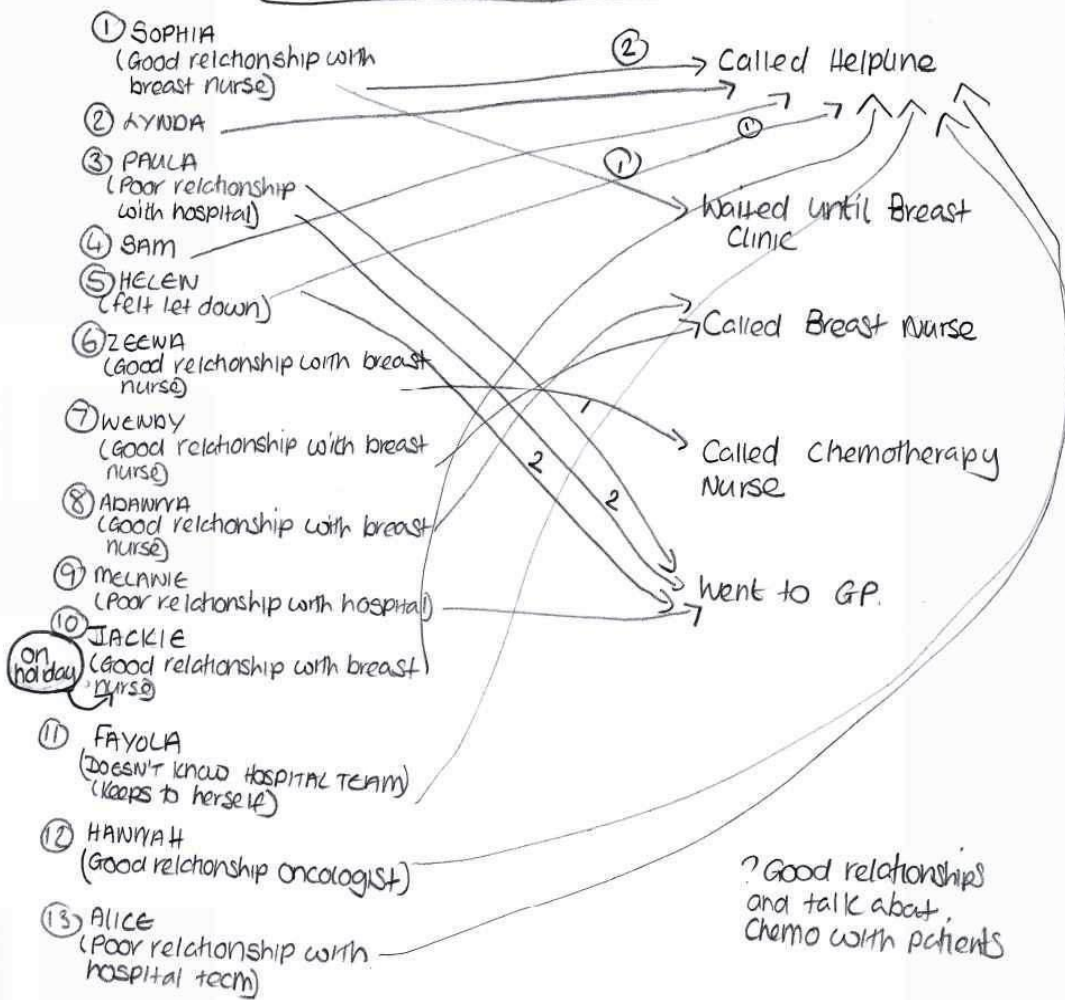 ① SOPHIA
(Good relationship with
breast nurse)
② LYNDA
③ PAULA
(Poor relationship
with hospital)
④ SAM
⑤ HELEN
(felt let down)
⑥ ZEEWA
(Good relationship with breast
nurse)
⑦ WENDY
(Good relationship with breast
nurse)
⑧ ADANNA
(Good relationship with breast
nurse)
⑨ MELANIE
(Poor relationship with hospital)
⑩ JACKIE
on
holiday
(Good relationship with breast
nurse)
⑪ FAYOLA
(DOESN'T KNOW HOSPITAL TEAM)
(Keeps to herself)
⑫ HANNAH
(Good relationship oncologist)
⑬ ALICE
(Poor relationship with
hospital team)
②
①
①
1
2
2
Called Helpline
Waited until Breast
Clinic
Called Breast Nurse
Called Chemotherapy
Nurse
Went to GP.
? Good relationships
and talk about
Chemo with patients